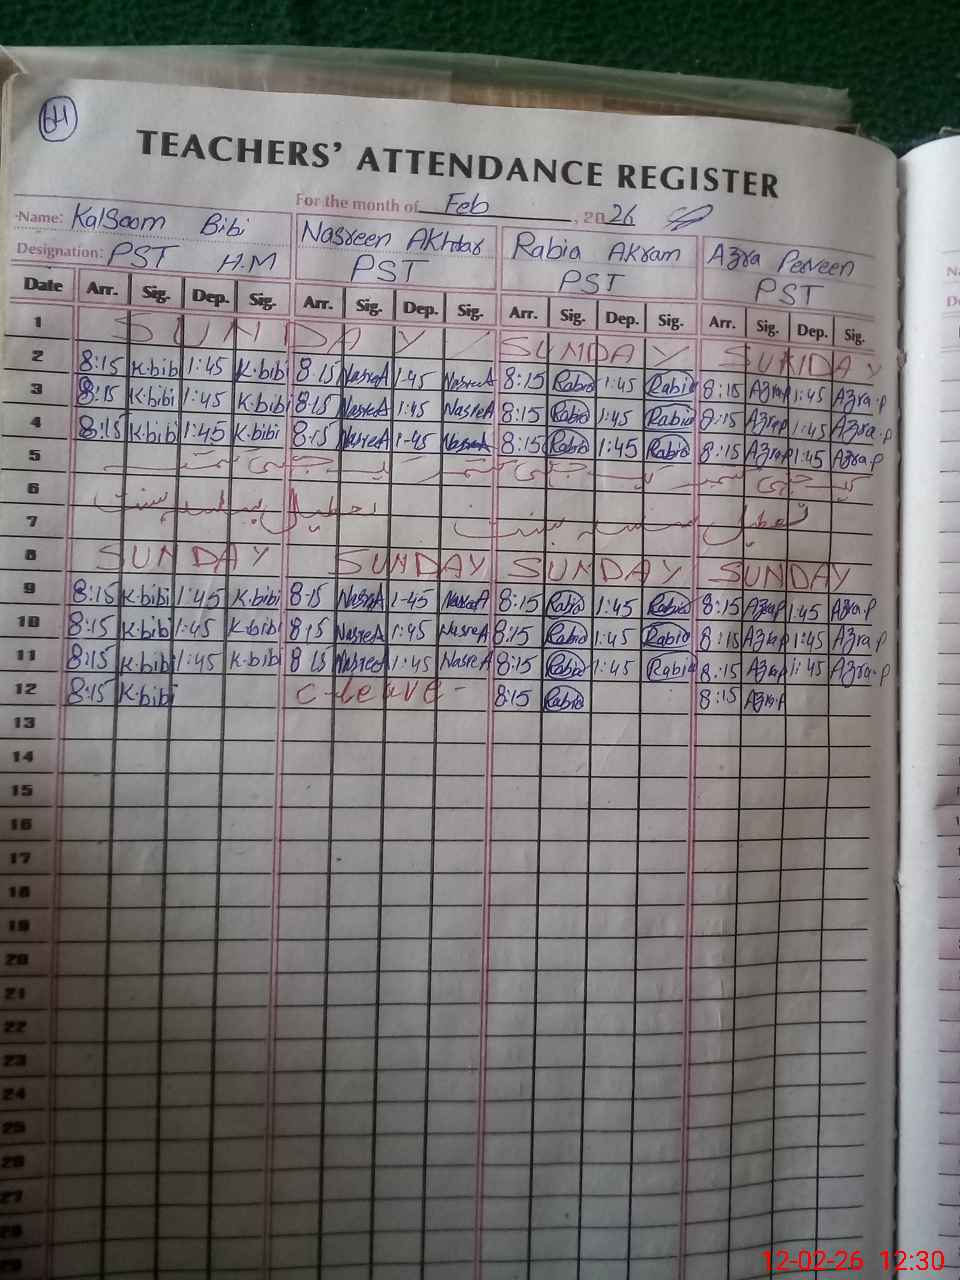 64
TEACHERS' ATTENDANCE REGISTER
For the month of Feb, 2026
Name: Kalsoom Bibi Nasreen Akhtar Rabia Akram Azra Perveen
Designation: PST H.M PST PST PST
Date Arr. Sig. Dep. Sig. Arr. Sig. Dep. Sig. Arr. Sig. Dep. Sig. Arr. Sig. Dep. Sig.
1 SUNDAY SUNDAY SUNDAY
2 8:15 K.bibi 1:45 K.bibi 8:15 NasreeA 1-45 NasreeA 8:15 Rabia 1:45 Rabia 8:15 Azra.p 1:45 Azra.p
3 8:15 K.bibi 1:45 K.bibi 8:15 NasreeA 1:45 NasreA 8:15 Rabia 1:45 Rabia 8:15 Azra.p 1:45 Azra.p
4 8:15 K.bibi 1:45 K.bibi 8:15 NasreeA 1-45 8:15 Rabia 1:45 Rabia 8:15 Azra.p 1:45 Azra.p
5
6
7
8 SUNDAY SUNDAY SUNDAY SUNDAY
9 8:15 K.bibi 1:45 K.bibi 8:15 NasreeA 1-45 NasreeA 8:15 Rabia 1:45 Rabia 8:15 Azra.p 1:45 Azra.p
10 8:15 K.bibi 1:45 K.bibi 8:15 NasreeA 1:45 NasreA 8:15 Rabia 1:45 Rabia 8:15 Azra.p 1:45 Azra.p
11 8:15 K.bibi 1:45 K.bibi 8:15 NasreeA 1:45 NasreA 8:15 Rabia 1:45 Rabia 8:15 Azra.p 1:45 Azra.p
12 8:15 K.bibi C-leave- 8:15 Rabia 8:15 Azra.p
13
14
15
16
17
18
19
20
21
22
23
24
25
26
27
28
29
12-02-26 12:30